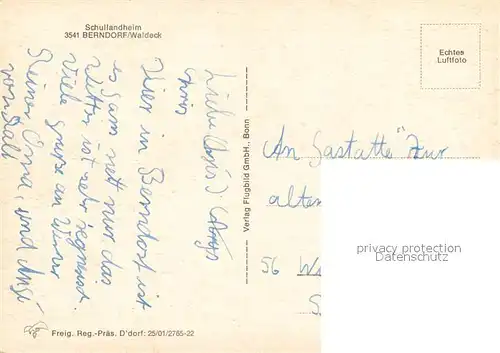 Schullandheim
3541 BERNDORF/Waldeck
Echtes
Luftfoto
Liebe
Hier in Berndorf ist
es ganz nett nur das
Wetter ist sehr regnerisch.
Viele Grüße an Werner
Reiner Oma, und
von Ralf
Verlag Flugbild GmbH., Bonn
An Gastätte "Zur
alten
56 W
privacy protection
Datenschutz
Freig. Reg.-Präs. D'dorf: 25/01/2765-22